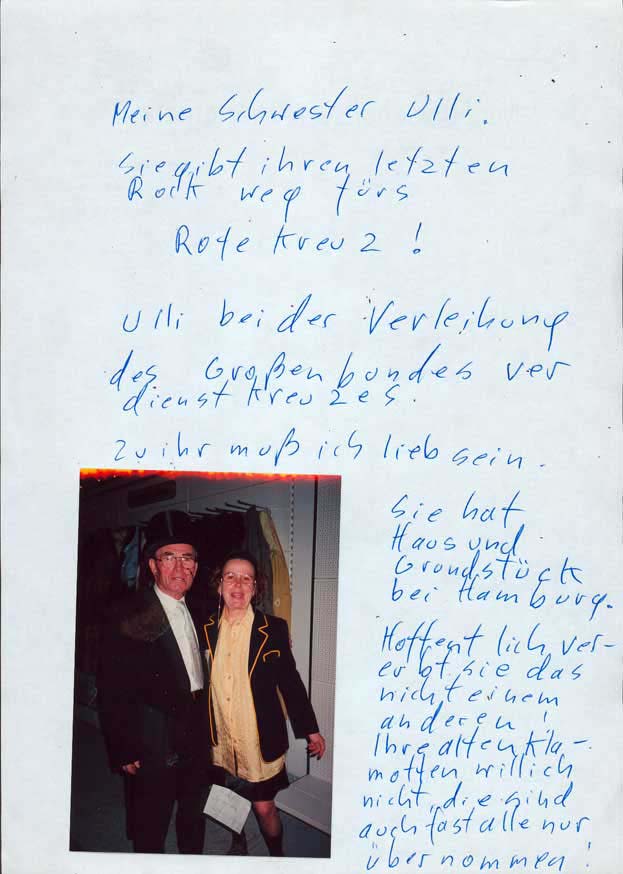 Meine Schwester Ulli.
Sie gibt ihren letzten
Rock weg fürs
Rote Kreuz !
Ulli bei der Verleihung
des Großenbundesver
dienstkreuzes.
Zu ihr muß ich lieb sein.
Sie hat
Haus und
Grundstück
bei Hamburg.
Hoffentlich ver-
erbt sie das
nicht einem
anderen !
Ihre alten Kla-
motten will ich
nicht, die sind
auch fast alle nur
übernommen !